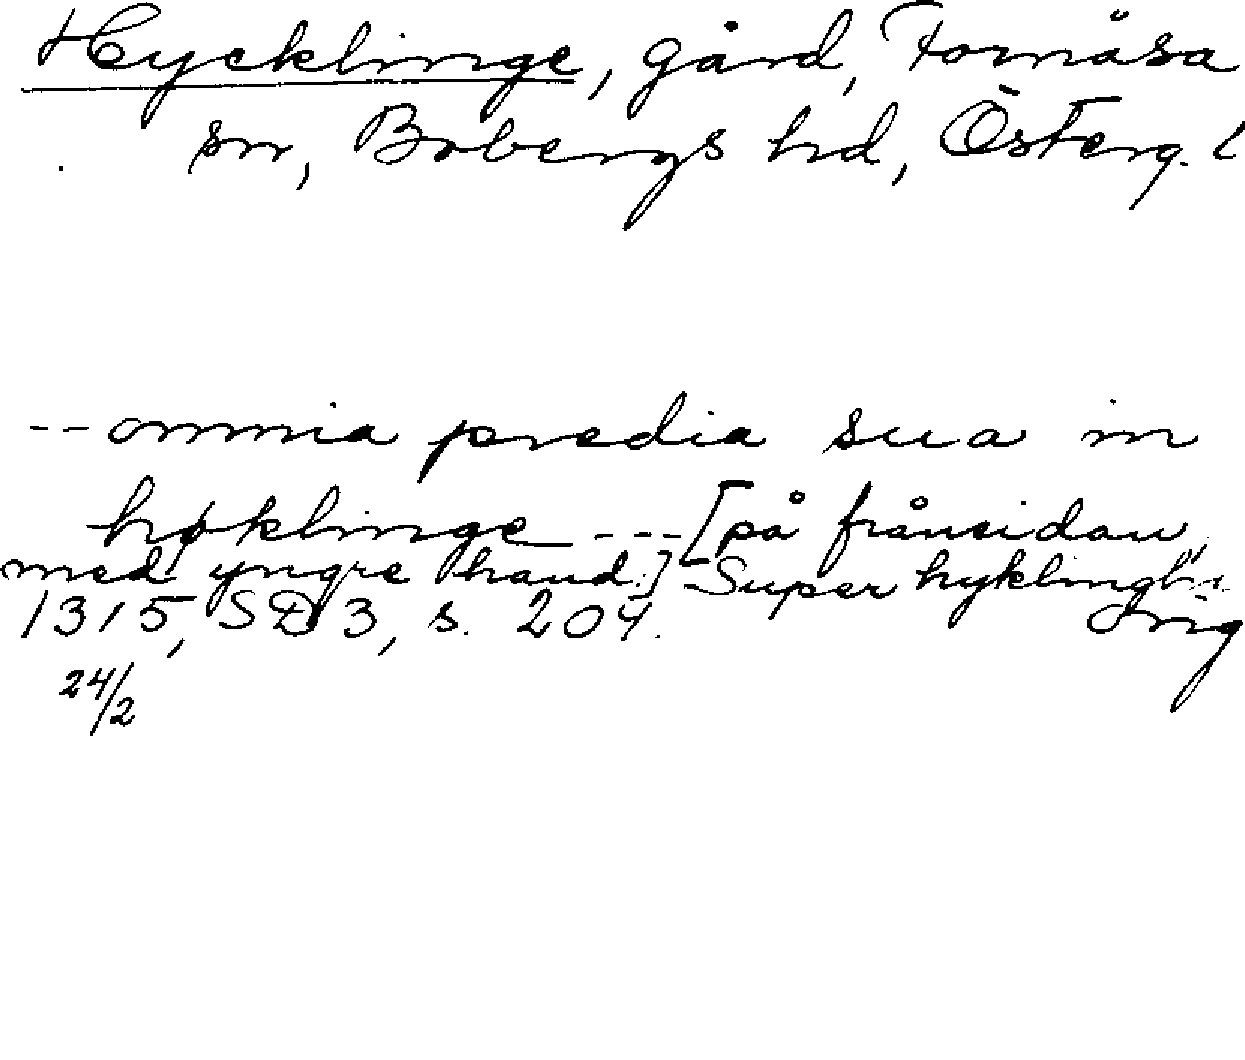 Hycklinge, gård, Fornåsa
sn, Bobergs hd, Österg. l
-- omnia predia sua in
høklinge --- [på frånsidan,
med yngre hand:] Super hyklingh
1315, SD 3, s. 204. Orig
24/2